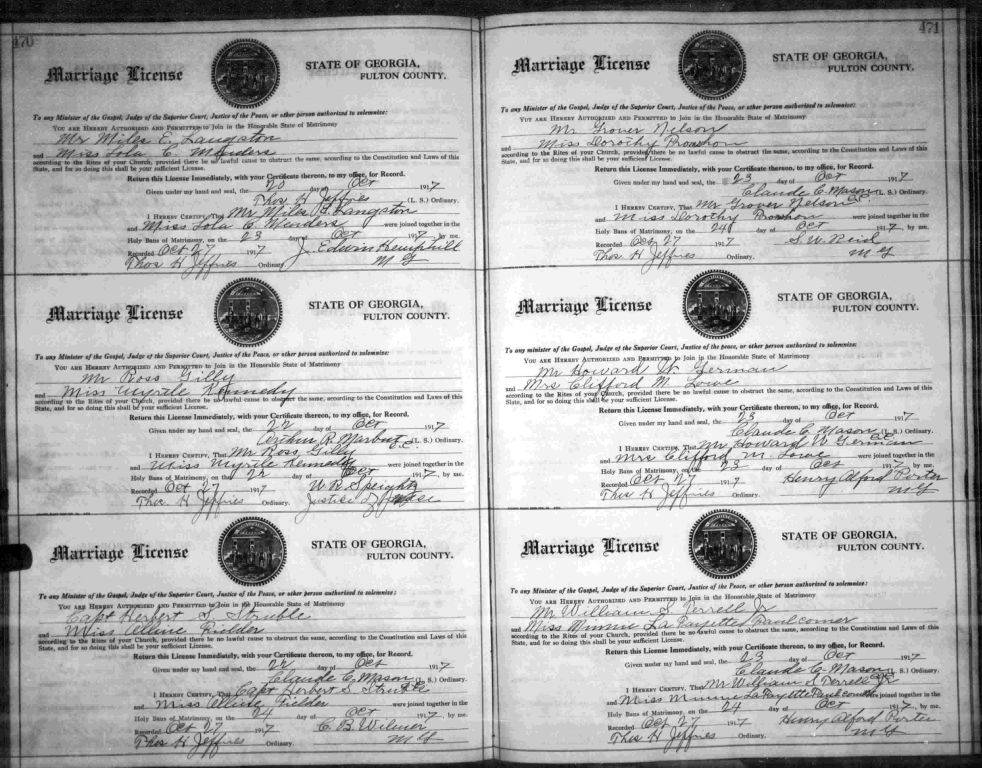 470
Marriage License
STATE OF GEORGIA,
FULTON COUNTY.
To any Minister of the Gospel, Judge of the Superior Court, Justice of the Peace, or other person authorized to solemnize:
YOU ARE HEREBY AUTHORIZED AND PERMITTED to Join in the Honorable State of Matrimony
Mr Miles E. Langston
and Miss Lola C. Menders
according to the Rites of your Church, provided there be no lawful cause to obstruct the same, according to the Constitution and Laws of this
State, and for so doing this shall be your sufficient License.
Return this License Immediately, with your Certificate thereon, to my office, for Record.
Given under my hand and seal, the 20 day of Oct 1917
Thos H Jeffries (L. S.) Ordinary.
I HEREBY CERTIFY, That Mr Miles E. Langston
and Miss Lola C Menders were joined together in the
Holy Bans of Matrimony, on the 23 day of Oct 1917, by me.
Recorded Oct 27 1917 J. Edwin Hemphill
Thos H Jeffries Ordinary. M G
Marriage License
STATE OF GEORGIA,
FULTON COUNTY.
To any Minister of the Gospel, Judge of the Superior Court, Justice of the Peace, or other person authorized to solemnize:
YOU ARE HEREBY AUTHORIZED AND PERMITTED to Join in the Honorable State of Matrimony
Mr Ross Gilly
and Miss Myrtle Kennedy
according to the Rites of your Church, provided there be no lawful cause to obstruct the same, according to the Constitution and Laws of this
State, and for so doing this shall be your sufficient License.
Return this License Immediately, with your Certificate thereon, to my office, for Record.
Given under my hand and seal, the 22 day of Oct 1917
Arthur R. Marbut C.C. (L. S.) Ordinary.
I HEREBY CERTIFY, That Mr Ross Gilly
and Miss Myrtle Kennedy were joined together in the
Holy Bans of Matrimony, on the 22 day of Oct 1917, by me.
Recorded Oct 27 1917 W. R. Speight
Thos H Jeffries Ordinary. Justice of Peace
Marriage License
STATE OF GEORGIA,
FULTON COUNTY.
To any Minister of the Gospel, Judge of the Superior Court, Justice of the Peace, or other person authorized to solemnize:
YOU ARE HEREBY AUTHORIZED AND PERMITTED to Join in the Honorable State of Matrimony
Capt Herbert S. Struble
and Miss Ellene Fielder
according to the Rites of your Church, provided there be no lawful cause to obstruct the same, according to the Constitution and Laws of this
State, and for so doing this shall be your sufficient License.
Return this License Immediately, with your Certificate thereon, to my office, for Record.
Given under my hand and seal, the 22 day of Oct 1917
Claude C Mason (L. S.) Ordinary.
I HEREBY CERTIFY, That Capt Herbert S. Struble
and Miss Ellene Fielder were joined together in the
Holy Bans of Matrimony, on the 24 day of Oct 1917, by me.
Recorded Oct 27 1917 C. B. Wilmer
Thos H Jeffries Ordinary. M G
471
Marriage License
STATE OF GEORGIA,
FULTON COUNTY.
To any Minister of the Gospel, Judge of the Superior Court, Justice of the Peace, or other person authorized to solemnize:
YOU ARE HEREBY AUTHORIZED AND PERMITTED to Join in the Honorable State of Matrimony
Mr Grover Nelson
and Miss Dorothy Broshon
according to the Rites of your Church, provided there be no lawful cause to obstruct the same, according to the Constitution and Laws of this
State, and for so doing this shall be your sufficient License.
Return this License Immediately, with your Certificate thereon, to my office, for Record.
Given under my hand and seal, the 23 day of Oct 1917
Claude C Mason (L. S.) Ordinary.
I HEREBY CERTIFY, That Mr Grover Nelson C.C.
and Miss Dorothy Broshon were joined together in the
Holy Bans of Matrimony, on the 24 day of Oct 1917, by me.
Recorded Oct 27 1917 S. W. Reid
Thos. H Jeffries Ordinary. M G
Marriage License
STATE OF GEORGIA,
FULTON COUNTY.
To any minister of the Gospel, Judge of the Superior Court, Justice of the peace, or other person authorized to solemnize:
YOU ARE HEREBY AUTHORIZED AND PERMITTED to Join in the Honorable State of Matrimony
Mr Howard W. German
and Mrs Clifford M. Lowe
according to the Rites of your Church, provided there be no lawful cause to obstruct the same, according to the Constitution and Laws of this
State, and for so doing this shall be your sufficient License.
Return this License Immediately, with your Certificate thereon, to my office, for Record.
Given under my hand and seal, the 23 day of Oct 1917
Claude C Mason (L. S.) Ordinary.
I HEREBY CERTIFY, That Mr Howard W German C.C.
and Mrs Clifford M. Lowe were joined together in the
Holy Bans of Matrimony, on the 23 day of Oct 1917, by me.
Recorded Oct 27 1917 Henry Alford Porter
Thos H Jeffries Ordinary. M G
Marriage License
STATE OF GEORGIA,
FULTON COUNTY.
To any Minister of the Gospel, Judge of the Superior Court, Justice of the Peace, or other person authorized to solemnize:
YOU ARE HEREBY AUTHORIZED AND PERMITTED to Join in the Honorable State of Matrimony
Mr William S. Terrell Jr
and Miss Minnie LaFayette Faulconer
according to the Rites of your Church, provided there be no lawful cause to obstruct the same, according to the Constitution and Laws of this
State, and for so doing this shall be your sufficient License.
Return this License Immediately, with your Certificate thereon, to my office, for Record.
Given under my hand and seal, the 23 day of Oct 1917
Claude C Mason (L. S.) Ordinary.
I HEREBY CERTIFY, That Mr William S Terrell Jr
and Miss Minnie LaFayette Faulconer were joined together in the
Holy Bans of Matrimony, on the 24 day of Oct 1917, by me.
Recorded Oct 27 1917 Henry Alford Porter
Thos H Jeffries Ordinary. M G